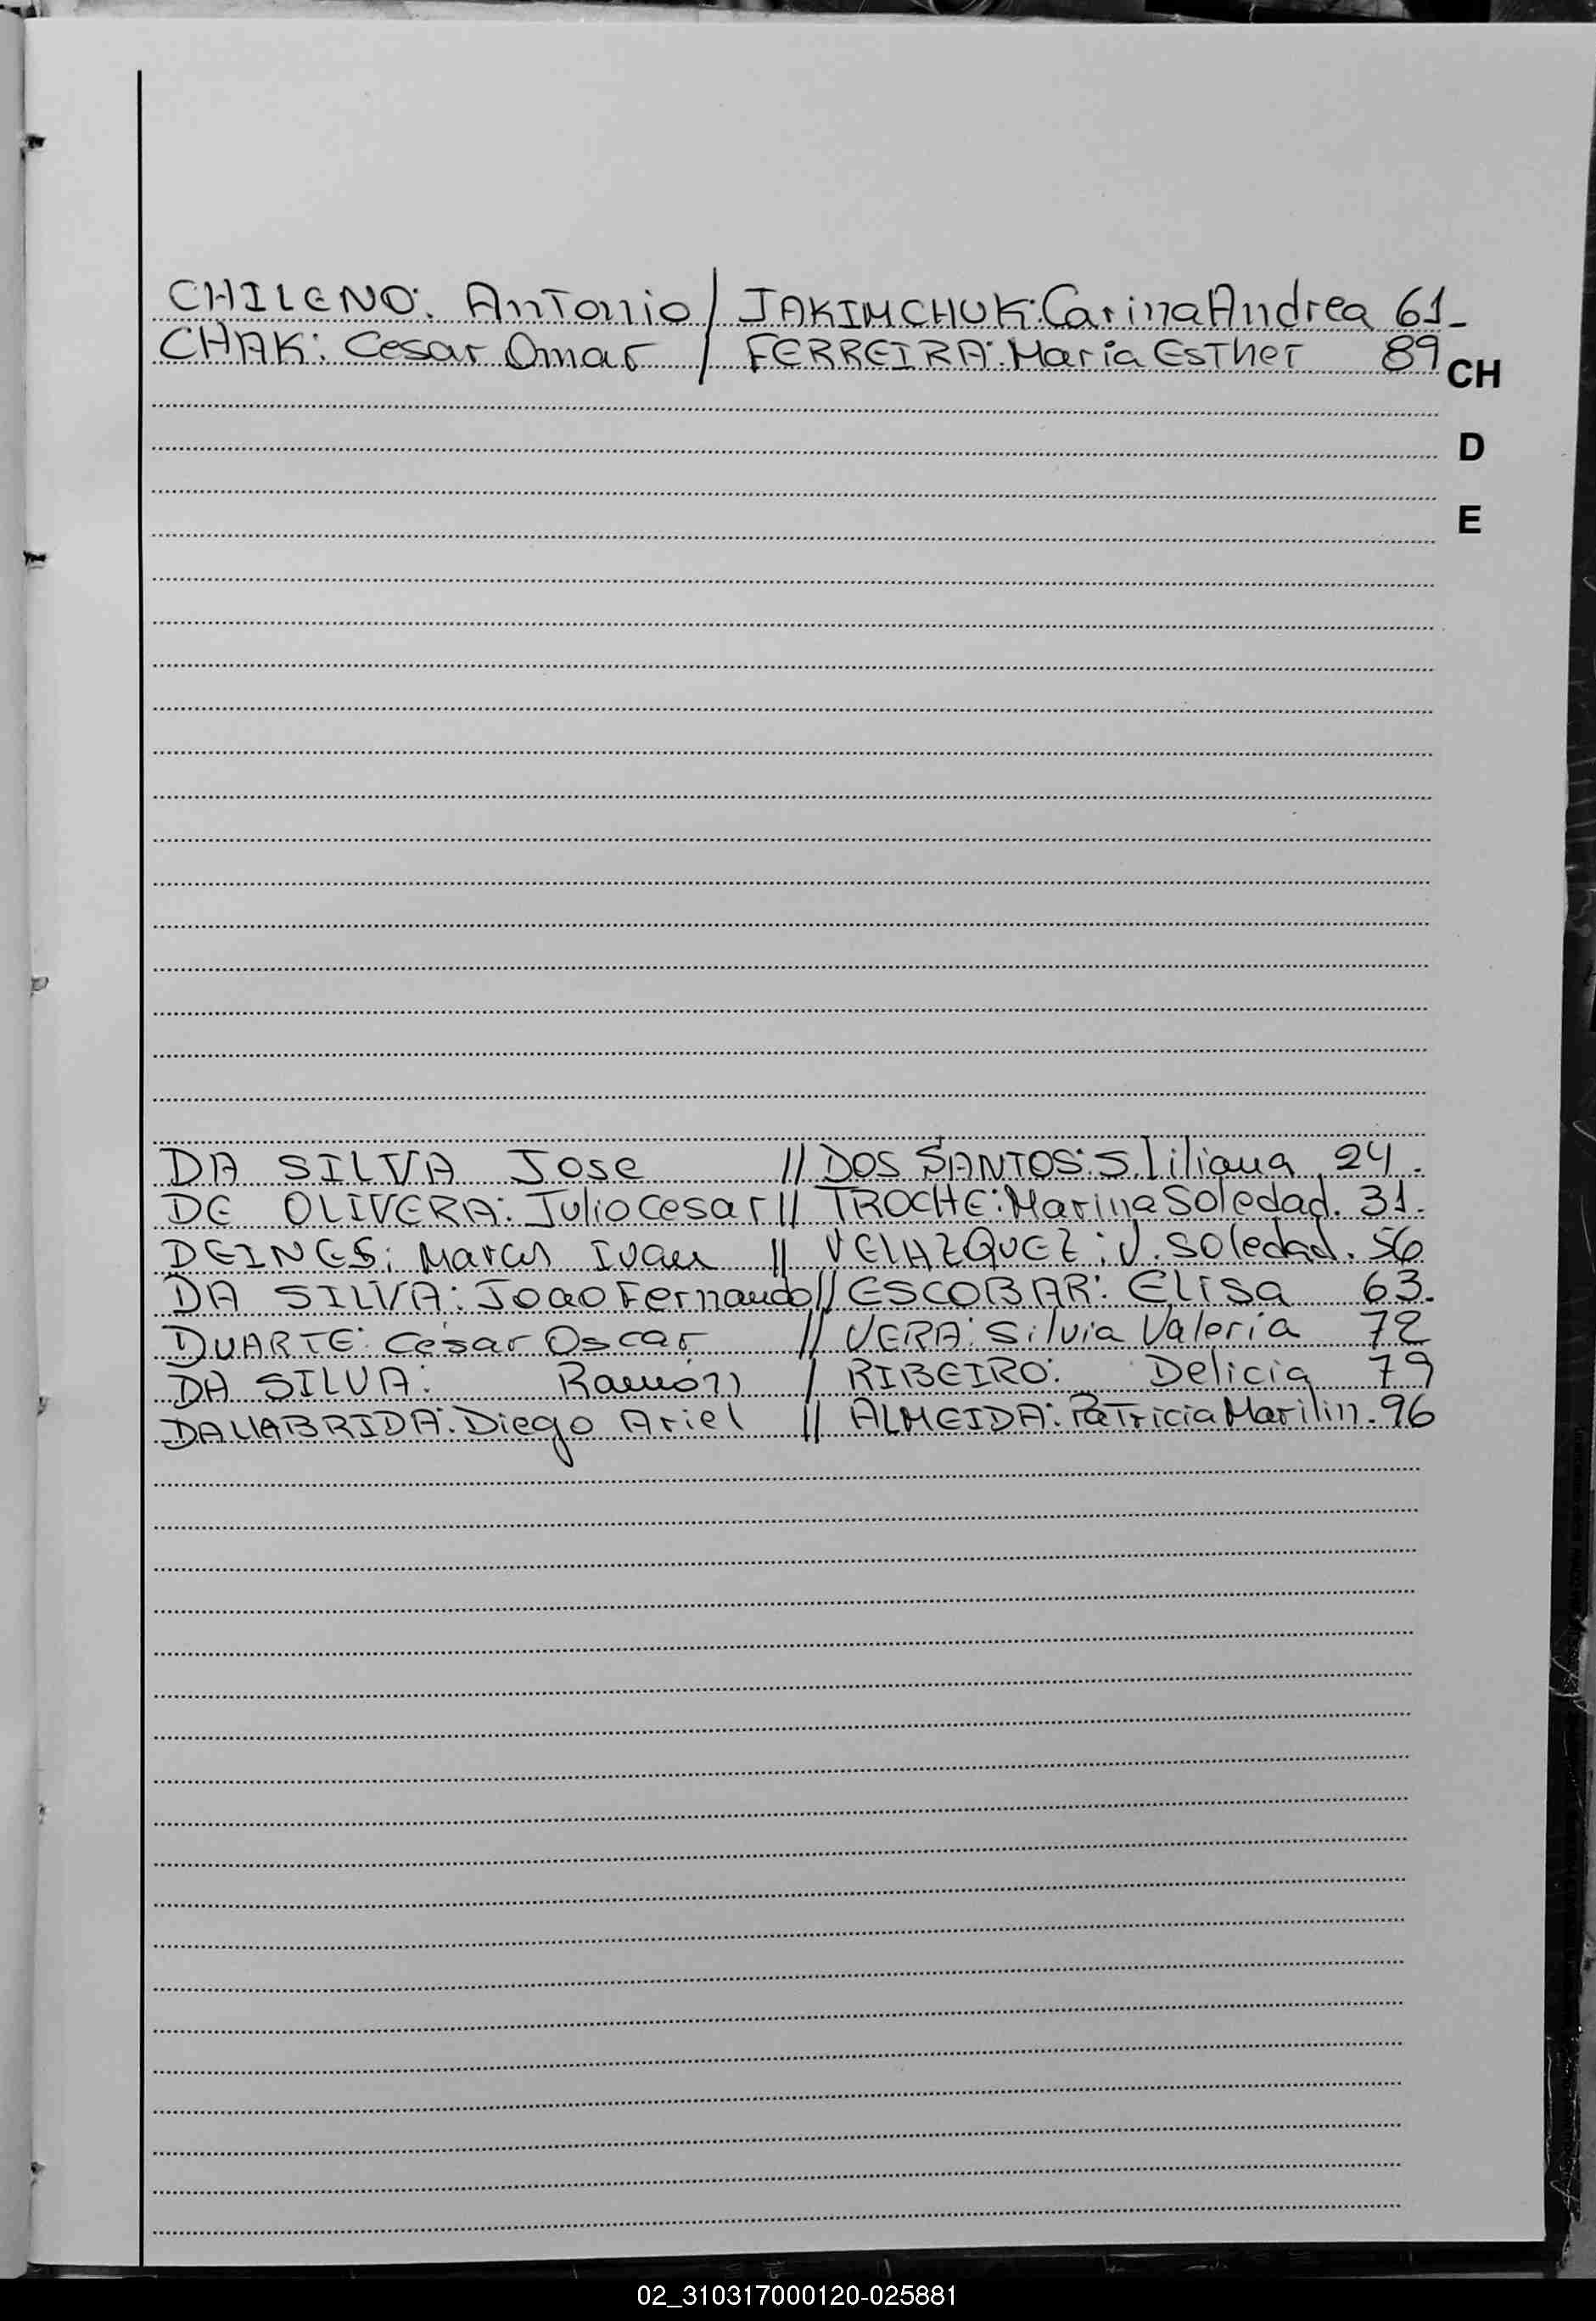 CHILENO: Antonio / JAKIMCHUK: Carina Andrea 61_
CHAK: Cesar Omar / FERREIRA: Maria Esther 89
CH
D
E
DA SILVA Jose // DOS SANTOS: S. liliana 24.
DE OLIVERA: Julio Cesar // TROCHE: Marina Soledad. 31.
DEINES: Marcos Ivan // VELAZQUEZ: J. Soledad. 56
DA SILVA: Joao Fernando // ESCOBAR: Elisa 63.
DUARTE: Cesar Oscar // VERA: Silvia Valeria 72
DA SILVA: Ramón / RIBEIRO: Delicia 79
DALLABRIDA: Diego Ariel // ALMEIDA: Patricia Marilin. 96
02_310317000120-025881